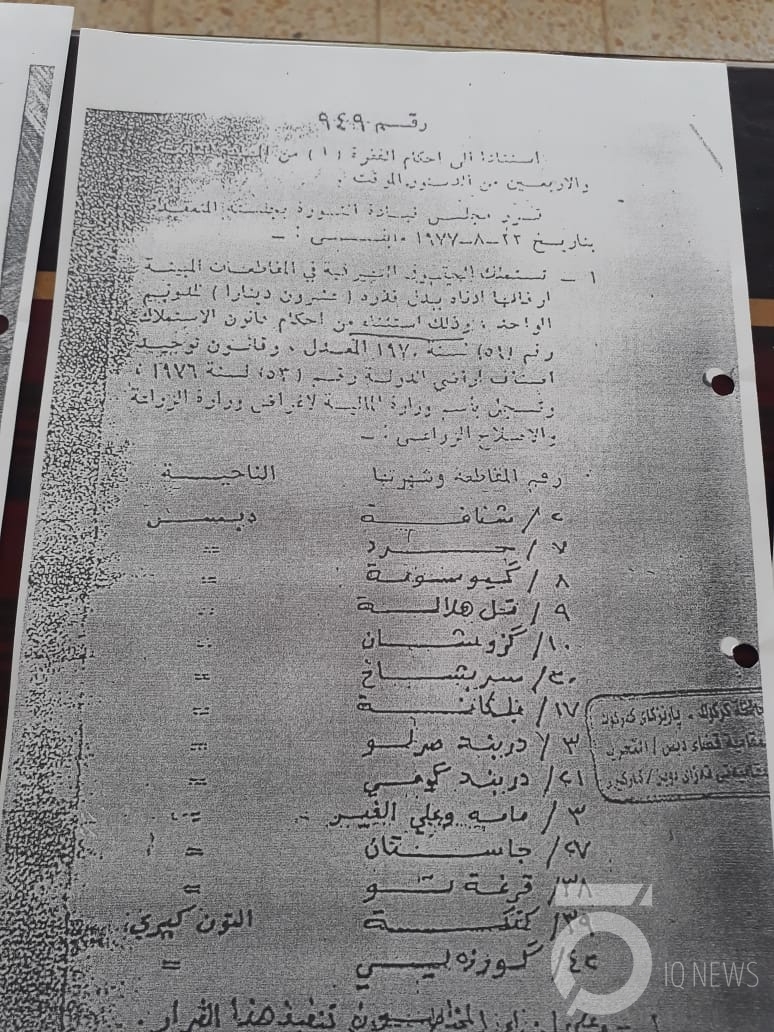 رقم ٩٤٩
استنادا الى احكام الفقرة (١) من المادة الثانية
والاربعين من الدستور الموقت .
قرر مجلس قيادة الثورة بجلسته المنعقدة
بتاريخ ٢٢-٨-١٩٧٧ :-
١ - تستملك الحقوق التصرفية في المقاطعات المبينة
ارقامها ادناه ببدل قدره (عشرون دينارا) للدونم
الواحد ، وذلك استثناء من احكام قانون الاستملاك
رقم (٥٤) لسنة ١٩٧٠ المعدل ، وقانون توحيد
اصناف اراضي الدولة رقم (٥٣) لسنة ١٩٧٦ ،
وتسجل باسم وزارة المالية لاغراض وزارة الزراعة
والاصلاح الزراعي :-
رقم المقاطعة وشهرتها الناحية
٢/ شنافة دبس
٧/ =
٨/ گيوسونة =
٩/ تل هلالة =
١٠/ =
٢٠/ سربشاخ =
١٧/ =
٣/ دربند صرلو =
٢١/ دربند =
٣/ مامه وعلي الغير =
٢٧/ جاستان =
٣٨/ قرغة تو =
٣٩/ التون كبري
٤٢/ =
هذا القرار .
محافظة كركوك - پارێزگای کەرکوک
قضاء دبس /
IQ NEWS